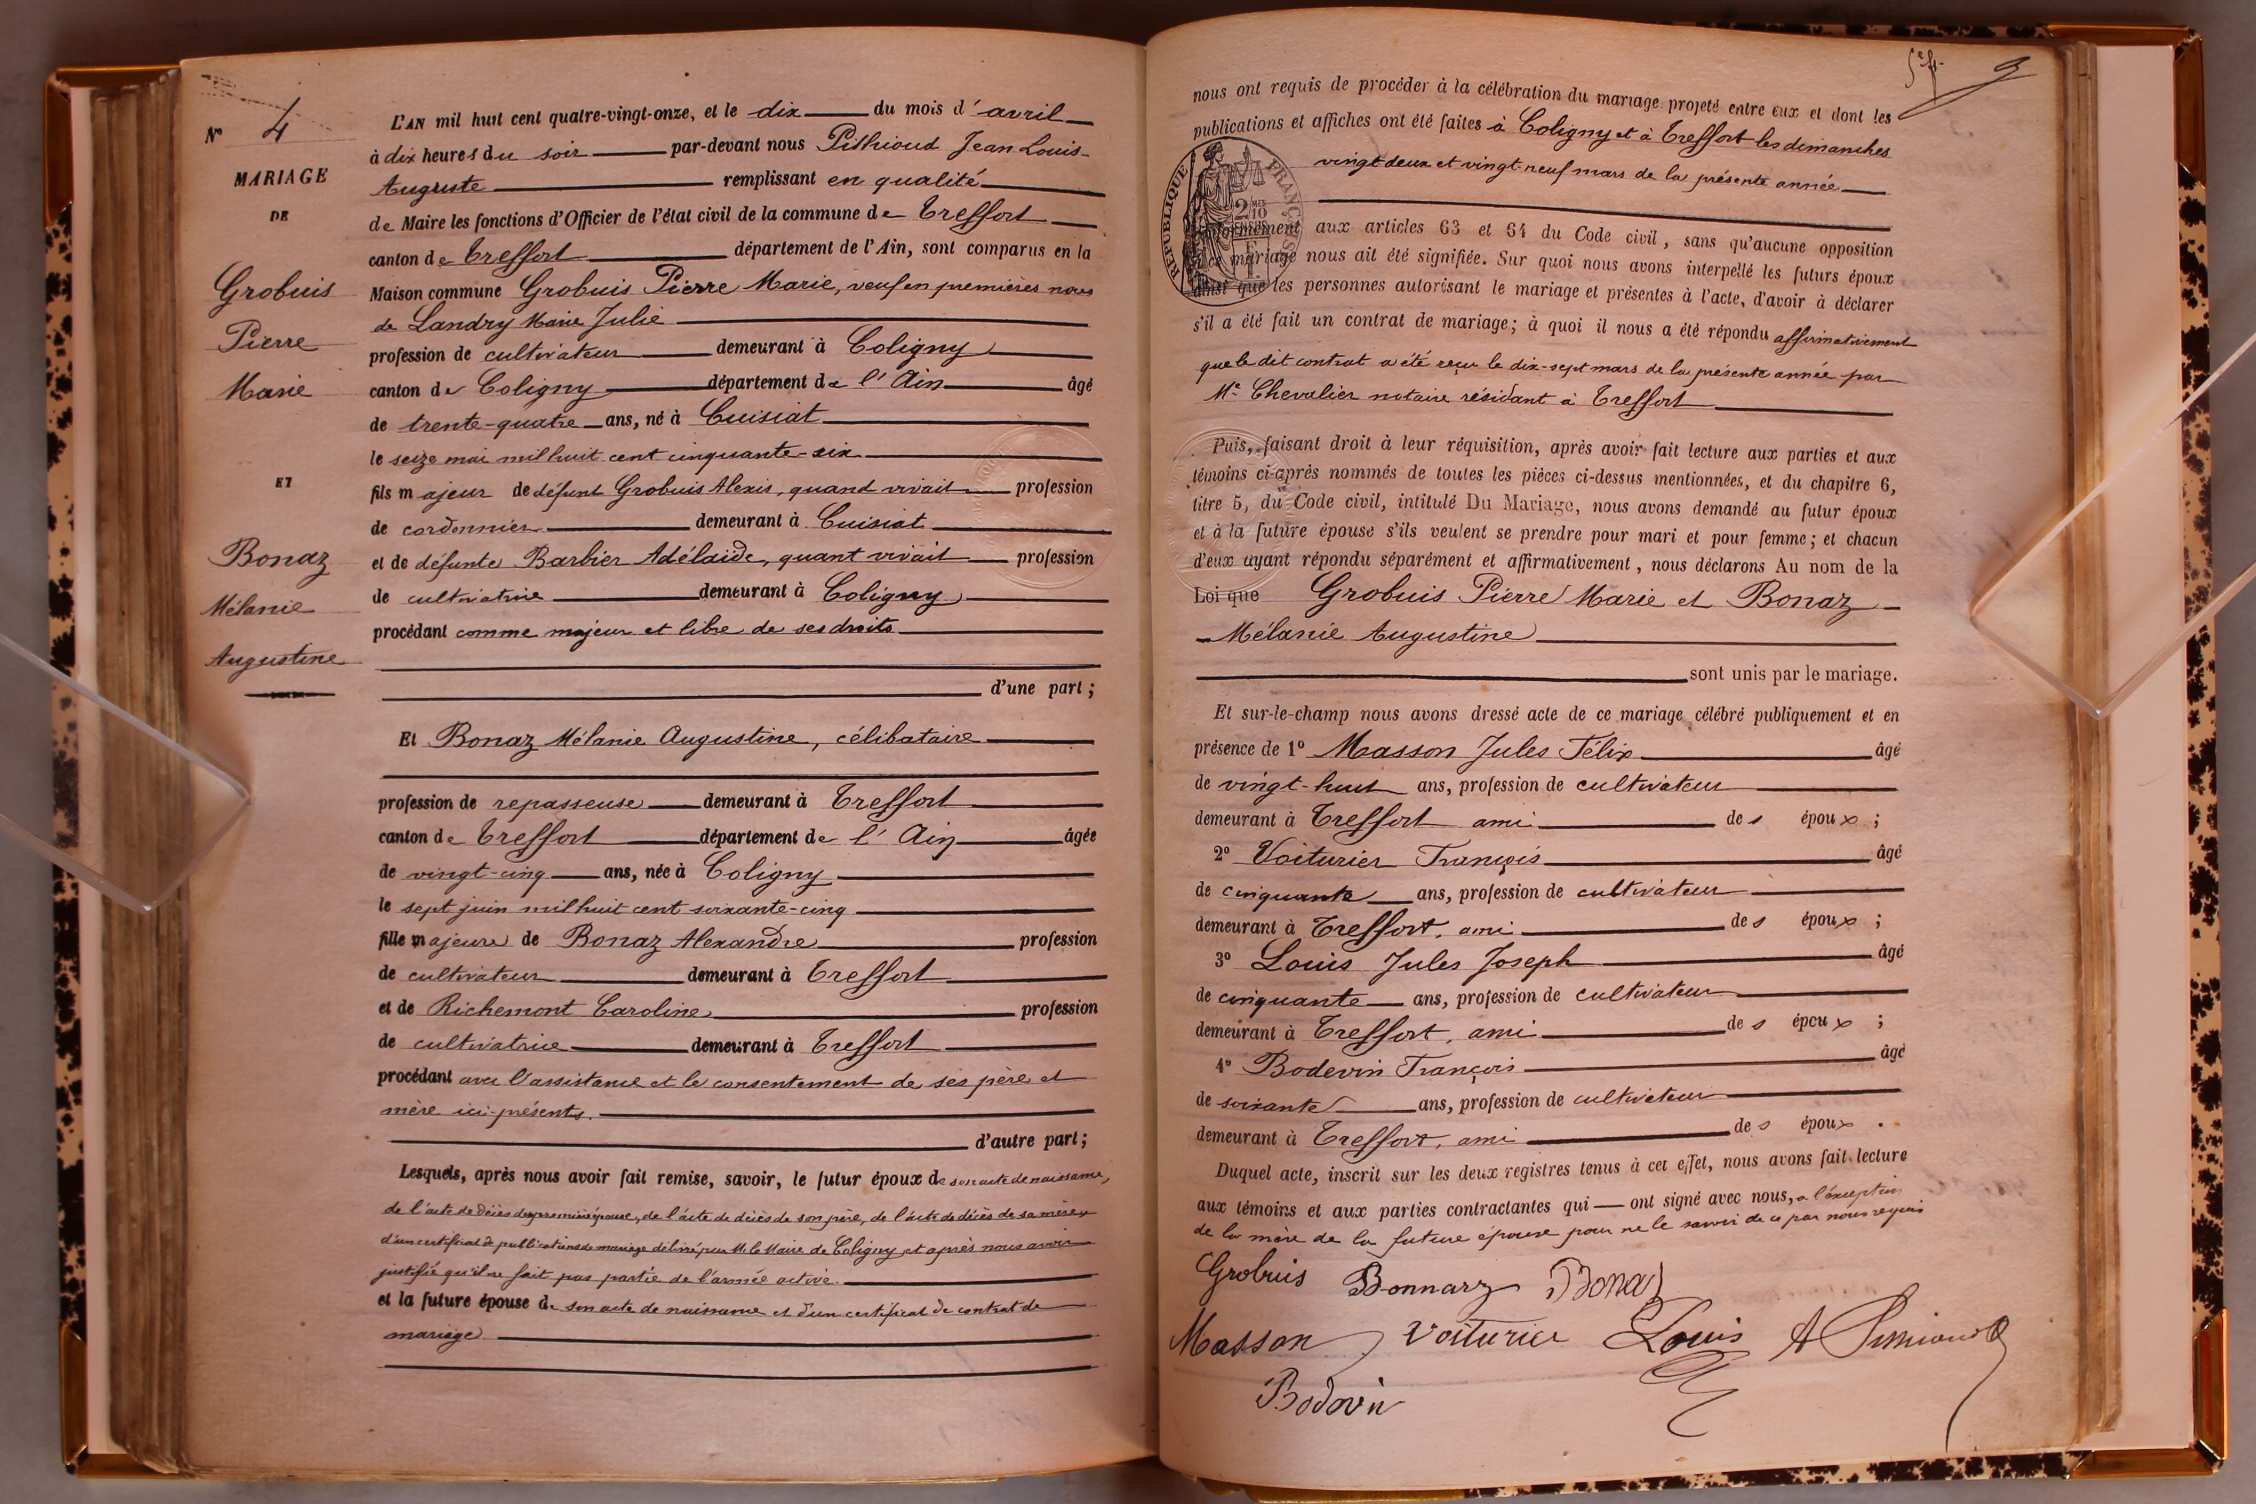 N° 4
MARIAGE
DE
Grobuis
Pierre
Marie
ET
Bonaz
Mélanie
Augustine
L'AN mil huit cent quatre-vingt-onze, et le dix du mois d'avril
à dix heures du soir par-devant nous Pithioud Jean Louis-
Auguste remplissant en qualité
de Maire les fonctions d'Officier de l'état civil de la commune de Treffort
canton de Treffort département de l'Ain, sont comparus en la
Maison commune Grobuis Pierre Marie, veuf en premières noces
de Landry Marie Julie
profession de cultivateur demeurant à Coligny
canton de Coligny département de l'Ain âgé
de trente-quatre ans, né à Cuisiat
le seize mai mil huit cent cinquante-six
fils majeur de défunt Grobuis Alexis, quand vivait profession
de cordonnier demeurant à Cuisiat
et de défunte Barbier Adélaïde, quant vivait profession
de cultivatrice demeurant à Coligny
procédant comme majeur et libre de ses droits
d'une part ;
Et Bonaz Mélanie Augustine, célibataire
profession de repasseuse demeurant à Treffort
canton de Treffort département de l'Ain âgée
de vingt-cinq ans, née à Coligny
le sept juin mil huit cent soixante-cinq
fille majeure de Bonaz Alexandre profession
de cultivateur demeurant à Treffort
et de Richemont Caroline profession
de cultivatrice demeurant à Treffort
procédant avec l'assistance et le consentement de ses père et
mère ici présents.
d'autre part ;
Lesquels, après nous avoir fait remise, savoir, le futur époux de son acte de naissance,
de l'acte de décès de sa première épouse, de l'acte de décès de son père, de l'acte de décès de sa mère,
d'un certificat de publications de mariage délivré par M. le Maire de Coligny et après nous avoir
justifié qu'il ne fait pas partie de l'armée active.
et la future épouse de son acte de naissance et d'un certificat de contrat de
mariage
9
nous ont requis de procéder à la célébration du mariage projeté entre eux et dont les
publications et affiches ont été faites à Coligny et à Treffort les dimanches
vingt-deux et vingt-neuf mars de la présente année
REPUBLIQUE FRANÇAISE
2/10
conformément aux articles 63 et 64 du Code civil, sans qu'aucune opposition
à ce mariage nous ait été signifiée. Sur quoi nous avons interpellé les futurs époux
ainsi que les personnes autorisant le mariage et présentes à l'acte, d'avoir à déclarer
s'il a été fait un contrat de mariage ; à quoi il nous a été répondu affirmativement
que le dit contrat a été reçu le dix-sept mars de la présente année par
Me Chevalier notaire résidant à Treffort
Puis, faisant droit à leur réquisition, après avoir fait lecture aux parties et aux
témoins ci-après nommés de toutes les pièces ci-dessus mentionnées, et du chapitre 6,
titre 5, du Code civil, intitulé Du Mariage, nous avons demandé au futur époux
et à la future épouse s'ils veulent se prendre pour mari et pour femme ; et chacun
d'eux ayant répondu séparément et affirmativement, nous déclarons Au nom de la
Loi que Grobuis Pierre Marie et Bonaz
Mélanie Augustine
sont unis par le mariage.
Et sur-le-champ nous avons dressé acte de ce mariage célébré publiquement et en
présence de 1° Masson Jules Félix âgé
de vingt-huit ans, profession de cultivateur
demeurant à Treffort ami des époux ;
2° Voiturier François âgé
de cinquante ans, profession de cultivateur
demeurant à Treffort, ami des époux ;
3° Louis Jules Joseph âgé
de cinquante ans, profession de cultivateur
demeurant à Treffort, ami des époux ;
4° Bodevin François âgé
de soixante ans, profession de cultivateur
demeurant à Treffort, ami des époux.
Duquel acte, inscrit sur les deux registres tenus à cet effet, nous avons fait lecture
aux témoins et aux parties contractantes qui ont signé avec nous, à l'exception
de la mère de la future épouse pour ne le savoir de ce par nous requis
Grobuis Bonnarz Bonaz
Masson Voiturier Louis
Bodovin